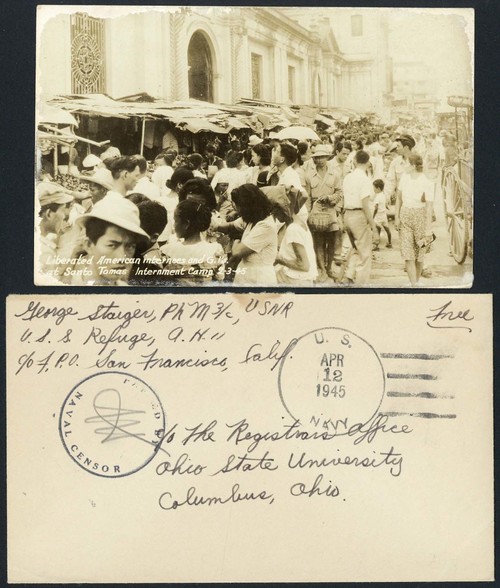 Liberated American Internees and G.I.s
at Santo Tomas Internment Camp 2-3-45
George Staiger, PhM3/c, USNR
Free
U.S.S. Refuge, A.H. 11
c/o F.P.O. San Francisco, Calif.
U. S.
APR
12
1945
NAVY
PASSED BY
NAVAL CENSOR
c/o The Registrars Office
Ohio State University
Columbus, Ohio.